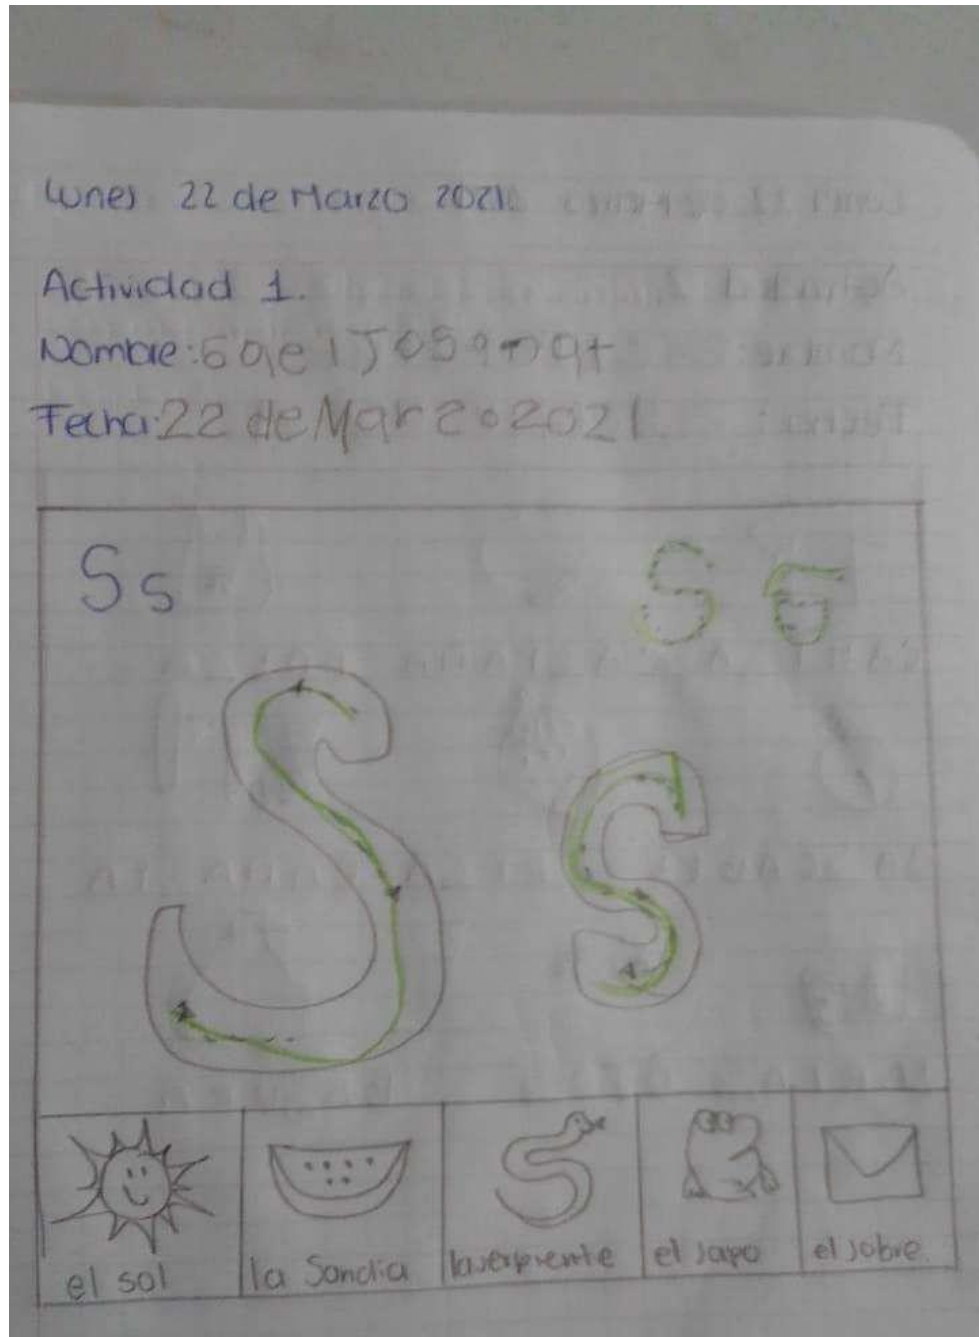 Lunes 22 de Marzo 2021
Actividad 1.
Nombre: Sael
Fecha: 22 de Marzo 2021
S s S s
S s
el sol la Sandia la serpiente el sapo el sobre.